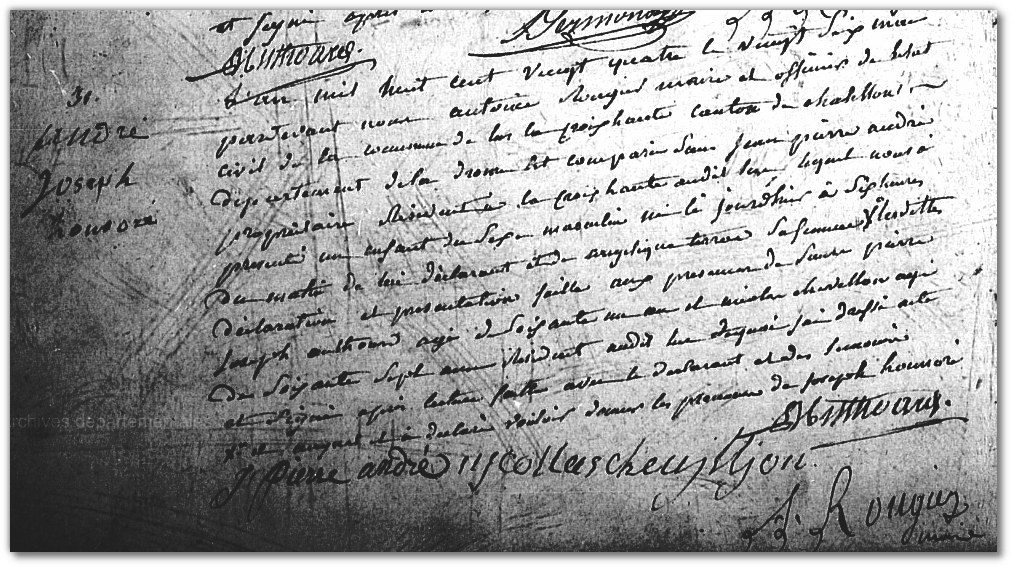 et signé après
Authouard
31.
André
Joseph
honoré
L'an mil huit cent vingt quatre le vingt six mai
pardevant nous antoine Rougier maire et officier de l'etat
civil de la commune de lus la croixhaute canton de chatillon
département de la drome est comparu Sieur jean pierre andré
propriétaire Résident à la croixhaute audit lieu lequel nous à
presenté un enfant du Sexe masculin né le jourdhui à Six heures
Du matin de lui déclarant et de angelique terrier Sa femme lesdittes
déclaration et présentation faitte aux presence de Sieurs pierre
joseph authouard agé de Soixante un an et nicolas chevillon agé
De Soixante Sept ans Résident audit lieu Dequoi j'ai dressé acte
et Signé après lecture faitte avec le declarant et les temoins
et à declaré vouloir donner les prenoms de joseph honoré
Authouard.
J Pierre andré nicollas chevilljon
A. Rougier
maire
archives départementales